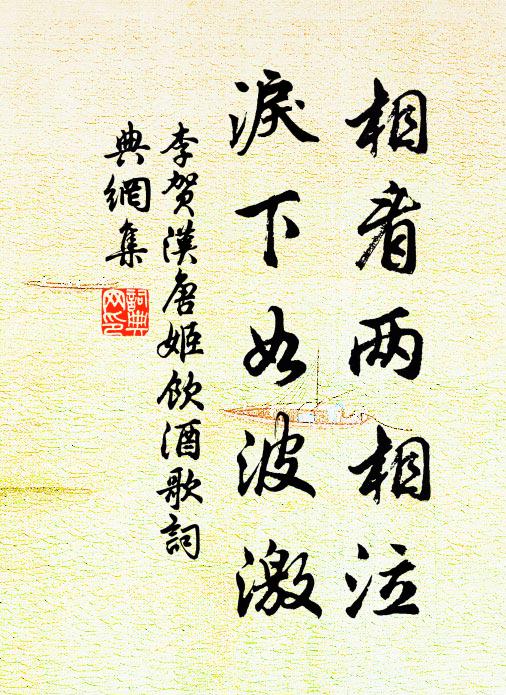 相看两相泣
淚下如波激
李贺漢唐姬饮酒歌詞
典網集
詞典
网印